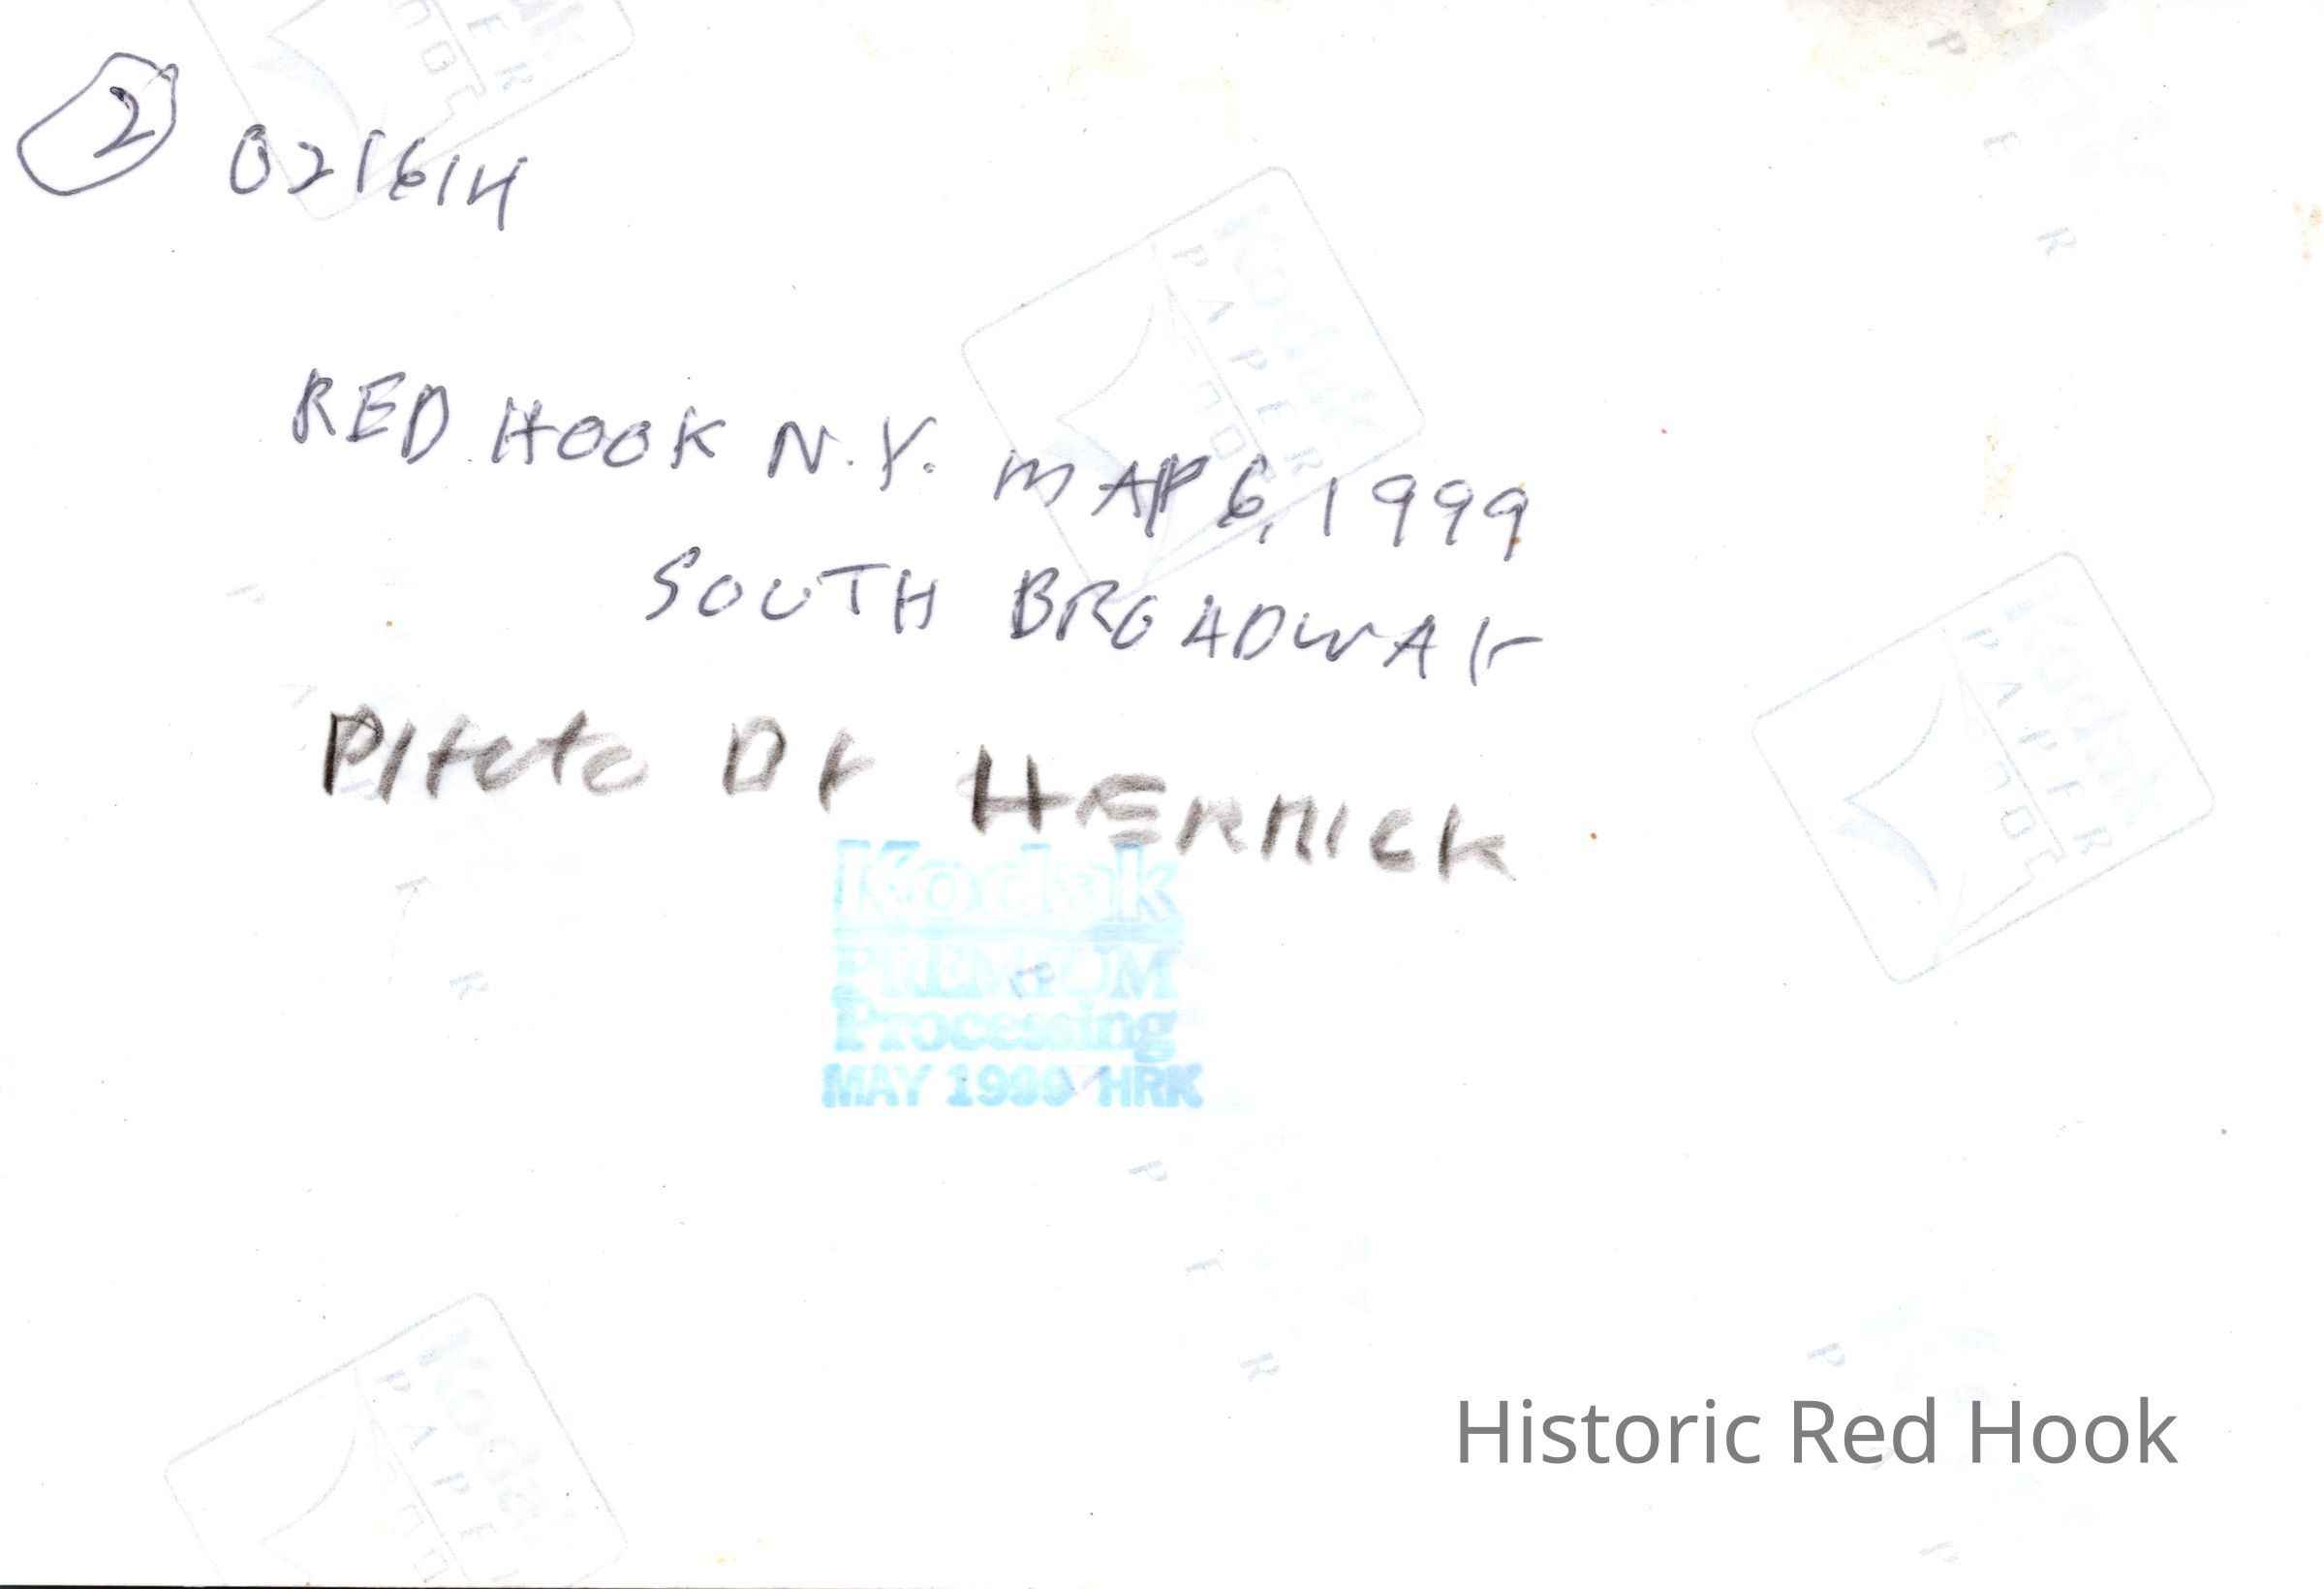 2
021614
RED HOOK N.Y. MAR 6, 1999
SOUTH BROADWAY
PHOTO BY HERRICK
Kodak
PREMIUM
Processing
MAY 1999 HRK
Kodak
PAPER
Kodak
PAPER
Kodak
PAPE
Historic Red Hook